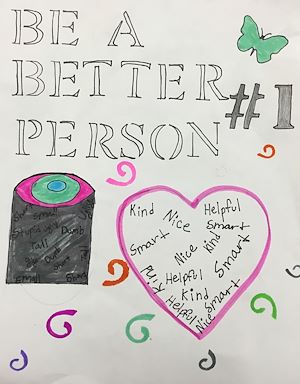 BE A
BETTER
PERSON
#1
Small
Stupid ugly Dumb
Tall
Kind Nice Helpful
Smart Smart
Nice Kind
Smart
Kind Helpful
Kind
Helpful Smart
Nice